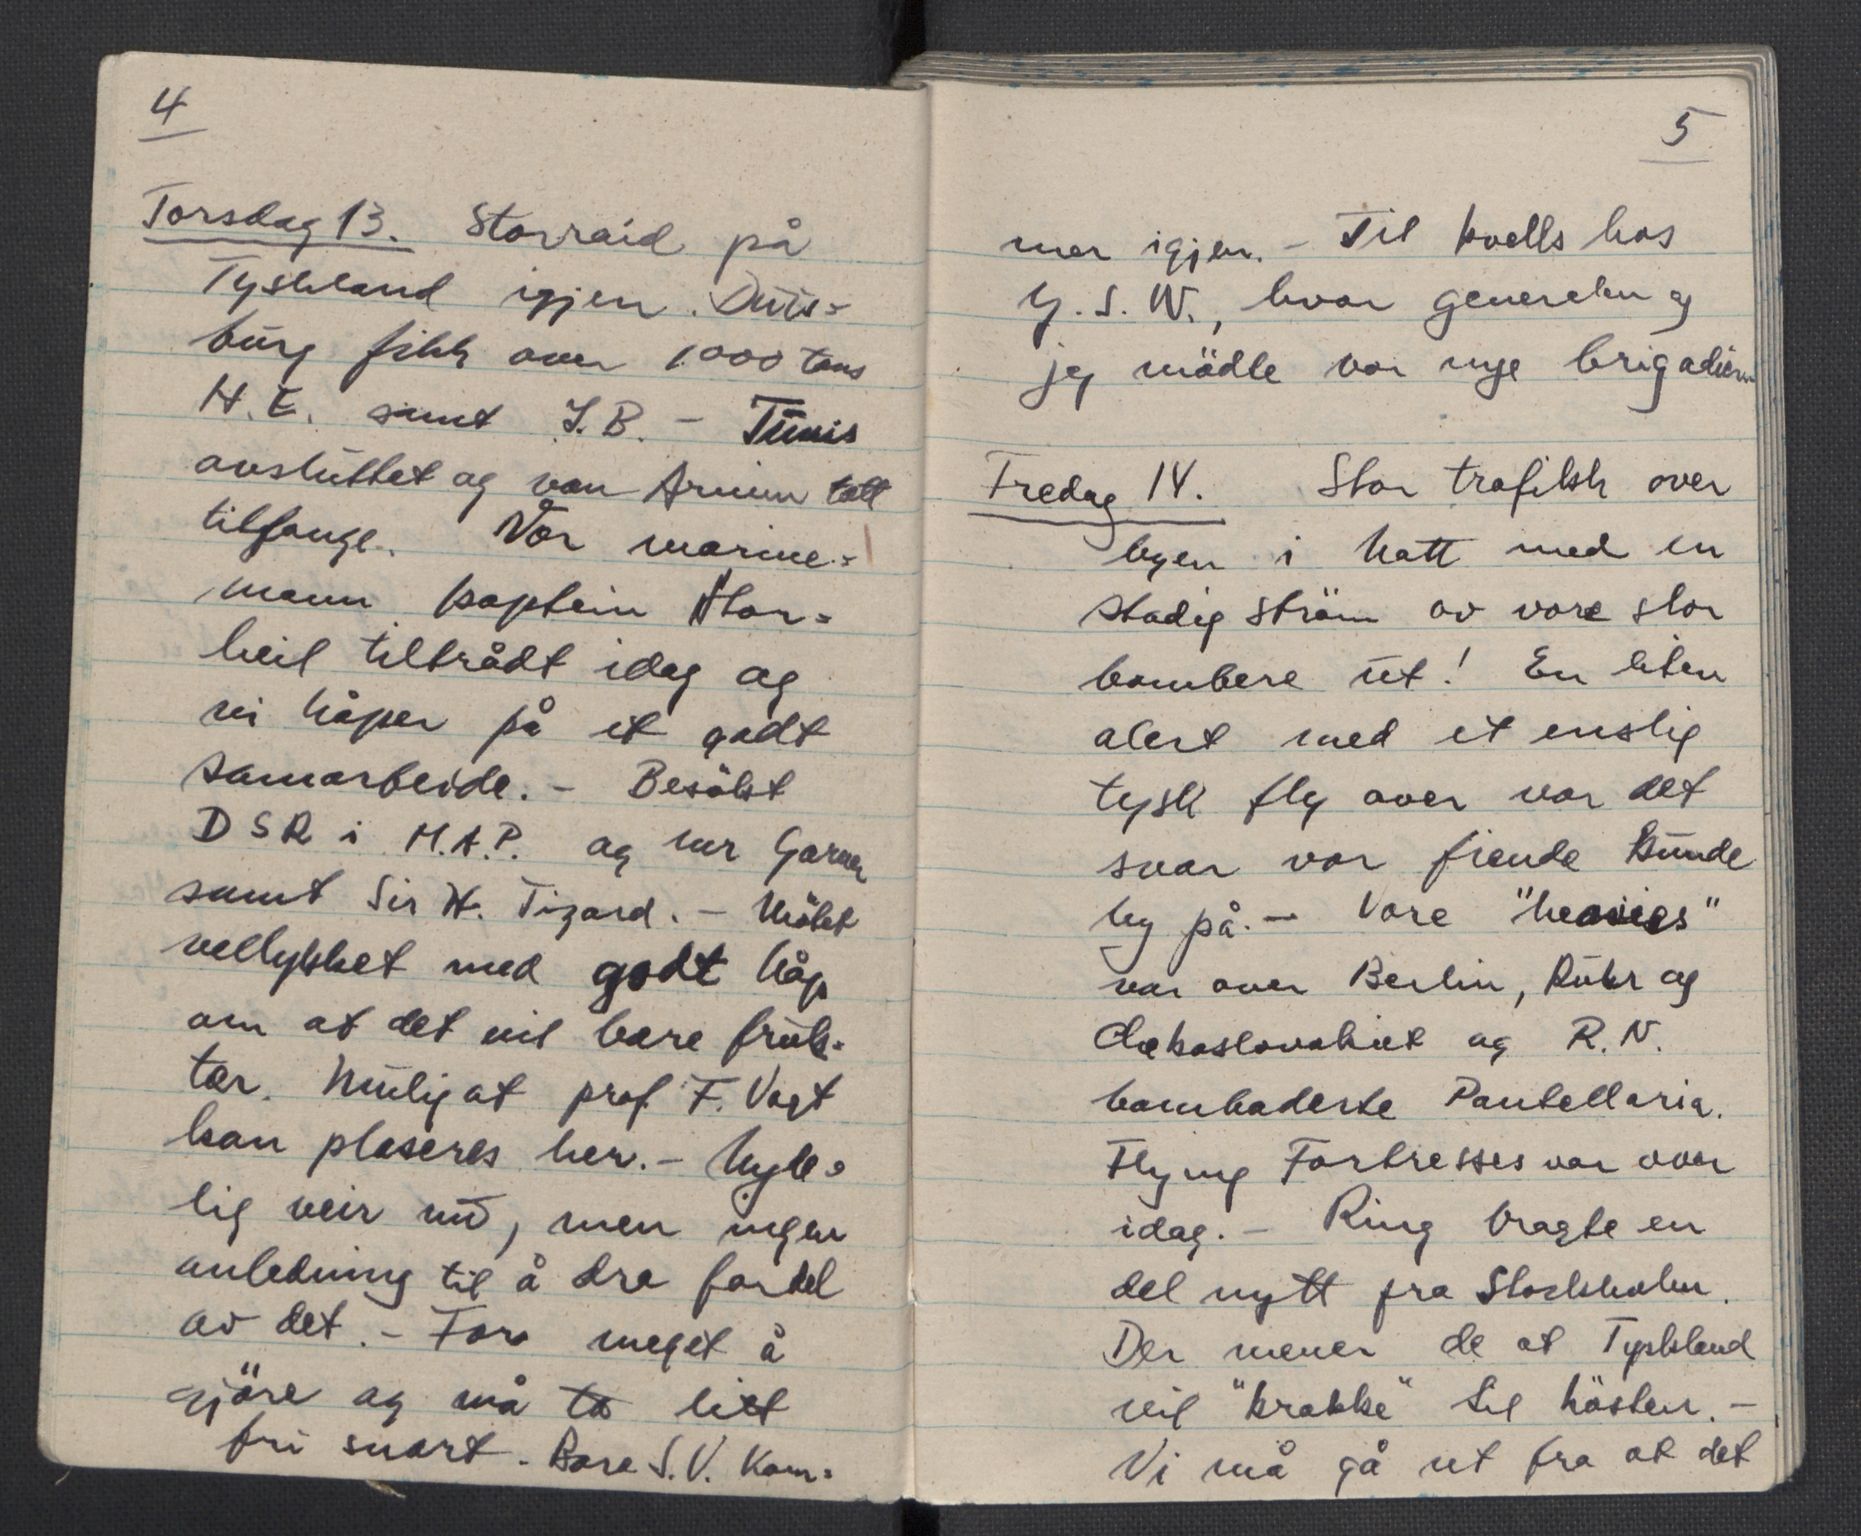 4
Torsdag 13. Storraid på
Tyskland igjen. Duis=
burg fikk over 1000 tons
H.E. samt I.B. - Tunis
avsluttet og von Arnim tatt
tilfange. Vor marine=
mann kaptein Stor=
heil tiltrådt idag og
vi håper på et godt
samarbeide. - Besökt
DSR i M.A.P. og mr Garner
samt Sir H. Tizard. - Mötet
vellykket med godt håp
om at det vil bære fruk=
ter. Mulig at prof. F. Vogt
kan plaseres her. - Nyde=
lig veir nu, men ingen
anledning til å dra fordel
av det. - For meget å
gjöre og må ta litt
fri snart. Bare S.V. kom=
5
mer igjen. - Til kvells hos
G.S.W., hvor generalen og
jeg mödte vor nye brigadier
Fredag 14. Stor trafikk over
byen i natt med en
stadig ström av vore stor
bombere ut! En liten
alert med et enslig
tysk fly over var det
svar vor fiende kunde
by på. - Vore "heavies"
var over Berlin, Ruhr og
Checkoslovakiet og R.N.
bombaderte Pantellaria.
Flying Fortresses var over
idag. - Ring bragte en
del nytt fra Stockholm.
Der mener de at Tyskland
vil "krakke" til hösten. -
Vi må gå ut fra at det